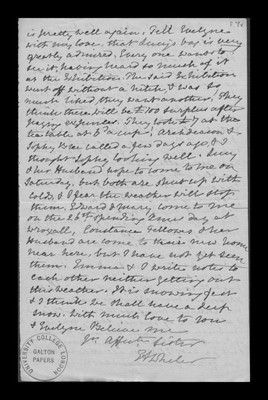 is pretty well again. Tell Evelyne
with my love, that Lucy's bag is very
greatly admired, Every one wants to
see it, having heard so much of it
at the Exhibition. The said Exhibition
went off without a hitch, & was so
much liked, they want another, They
think there will be £100 surplus after
paying expenses. They took £ at the
tea table at 6d a cup! Archdeacon &
Sophy Bree called a few days ago, & I
thought Sophy looking well. Lucy
& her Husband hope to come to me on
Saturday, but both are shut up with
colds, & I fear the weather will stop
them, Edward & Mary, come to me
on the 26th spending Xmas day at
Wroxall, Constance Fellows & her
Husband are come to their new home
near here, but I have not yet seen
them. Emma & I write notes to
each other neither getting out
this weather. It is snowing fast
& I think we shall have a deep
snow. With much love to you
& Evelyne Believe me
Yr. Affecte Sister
E A Wheler
UNIVERSITY COLLEGE LONDON
GALTON
PAPERS